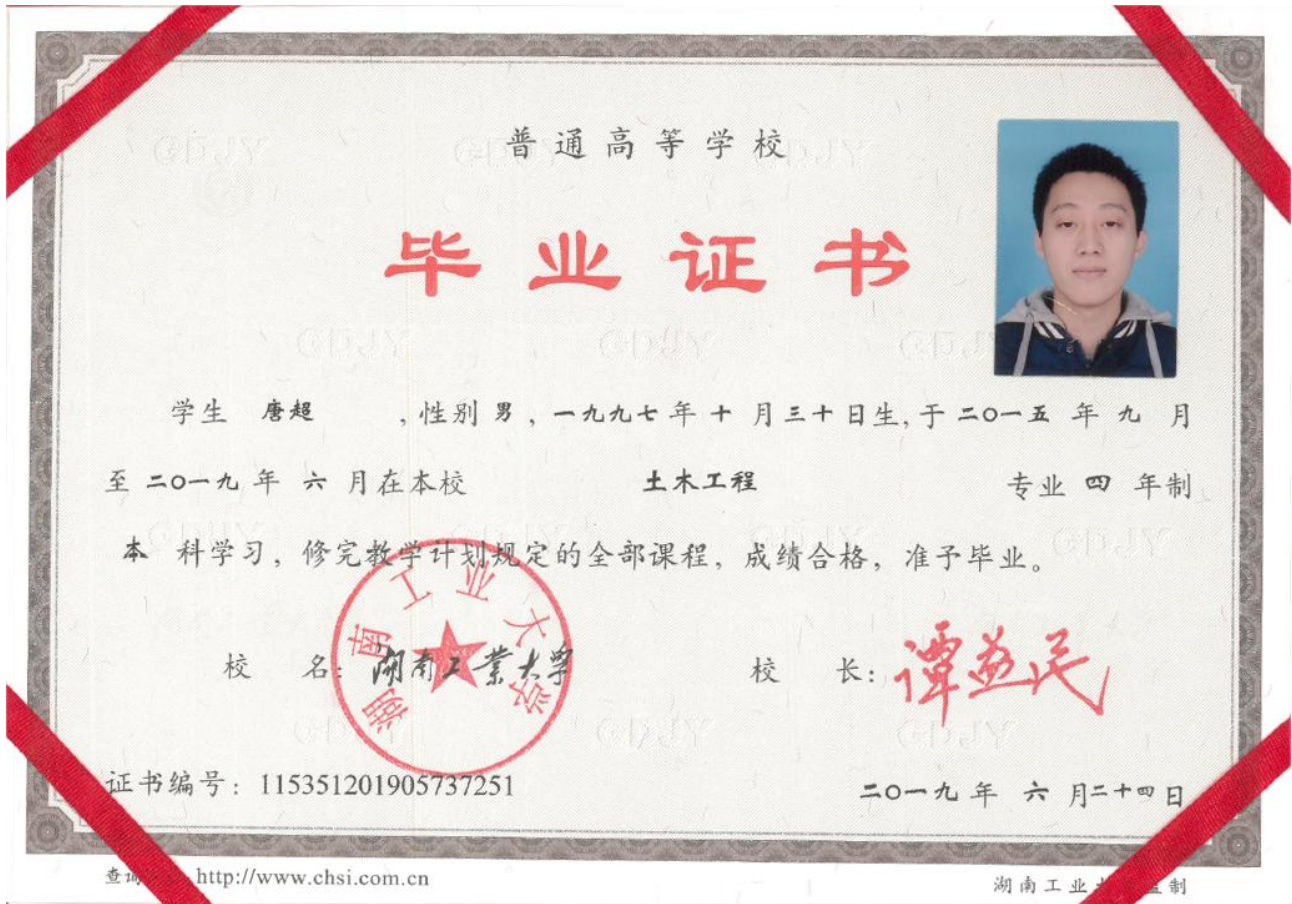 普通高等学校
毕业证书
学生 唐超 ,性别 男 , 一九九七 年 十 月 三十 日生, 于 二〇一五 年 九 月
至 二〇一九 年 六 月在本校 土木工程 专业 四 年制
本 科学习, 修完教学计划规定的全部课程, 成绩合格, 准予毕业。
湖南工业大学
校 名: 湖南工業大学
校 长: 谭益民
证书编号: 115351201905737251
二〇一九 年 六 月二十四日
http://www.chsi.com.cn
湖南工业 制